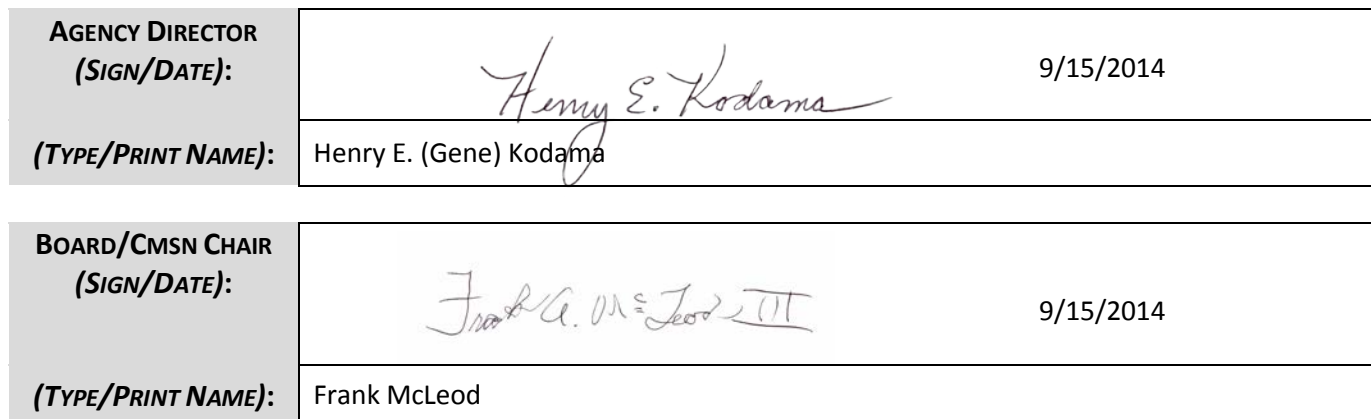 AGENCY DIRECTOR
(SIGN/DATE):
Henry E. Kodama
9/15/2014
(TYPE/PRINT NAME):
Henry E. (Gene) Kodama
BOARD/CMSN CHAIR
(SIGN/DATE):
Frank A. McLeod III
9/15/2014
(TYPE/PRINT NAME):
Frank McLeod